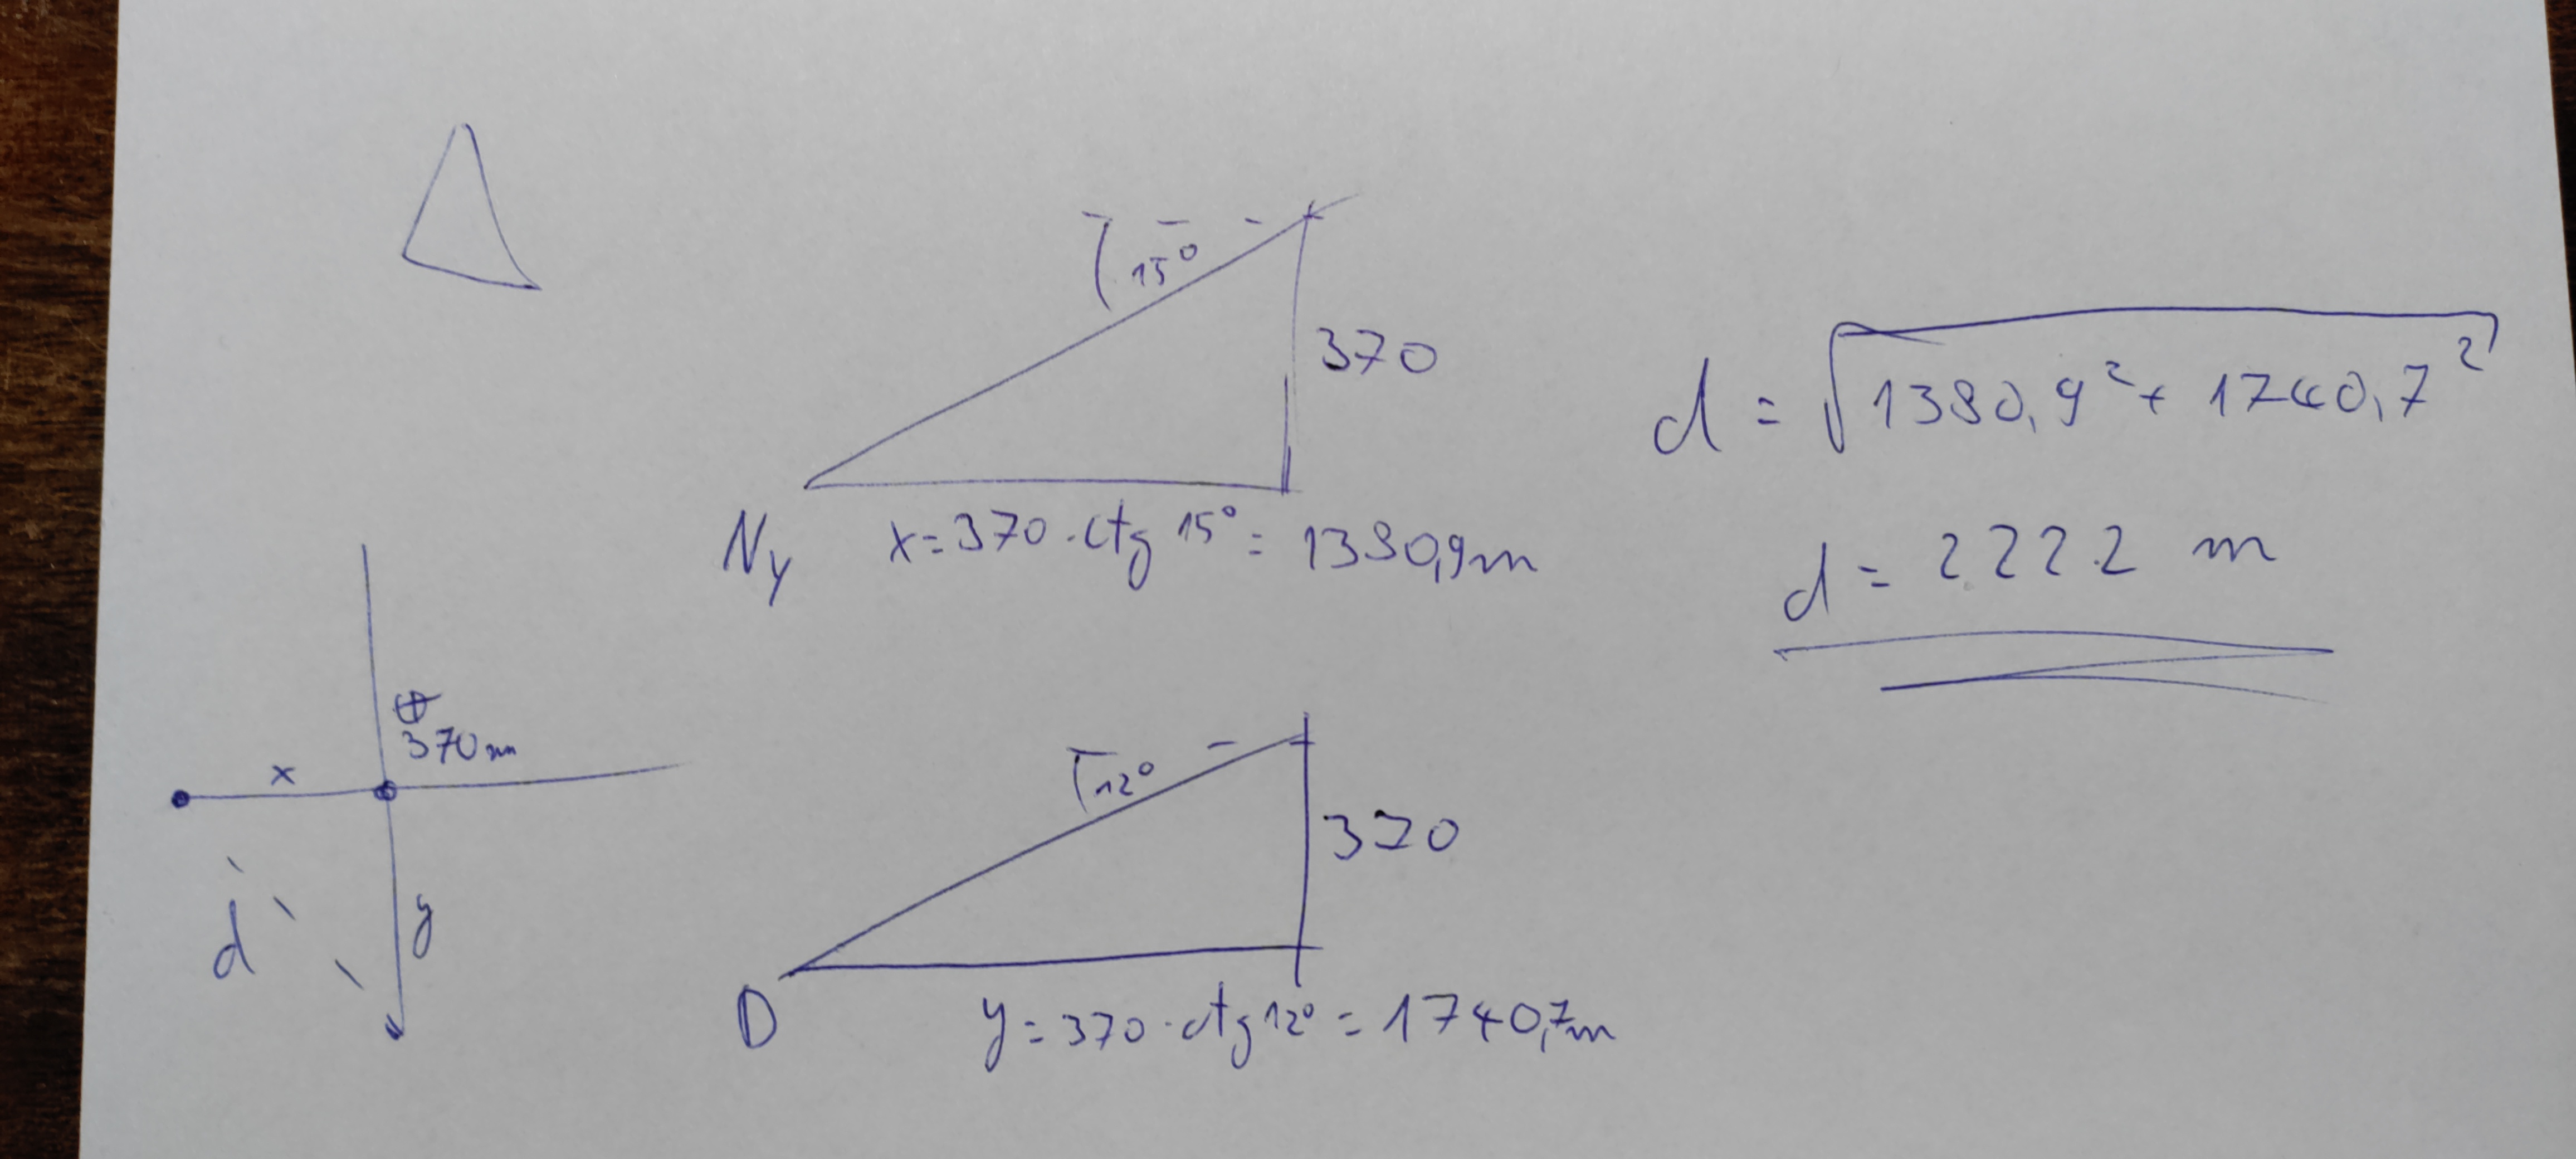 15°
370
Ny
x = 370 · ctg 15° = 1380,9m
d = √1380,9² + 1740,7²
d = 2222 m
370m
x
y
d
12°
370
D
y = 370 · ctg 12° = 1740,7m